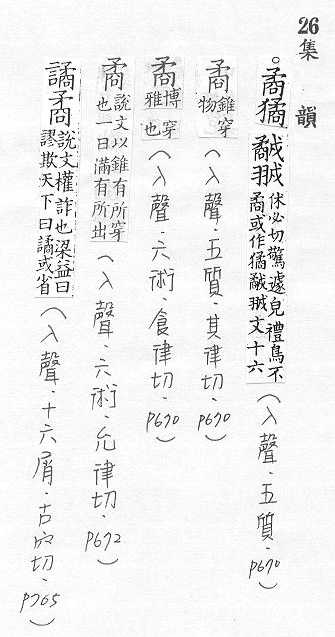 26
集韻
。矞獝𢧕𦐛休必切驚遽皃禮鳥不矞或作獝𢧕𦐛文十六(入聲.五質.p670)
矞錐穿物(入聲.五質.其律切.p670)
矞博雅穿也(入聲.六術.食律切.p670)
矞說文以錐有所穿也一曰滿有所出(入聲.六術.允律切.p672)
譎矞說文權詐也梁益曰謬欺天下曰譎或省(入聲.十六屑.古穴切.p765)